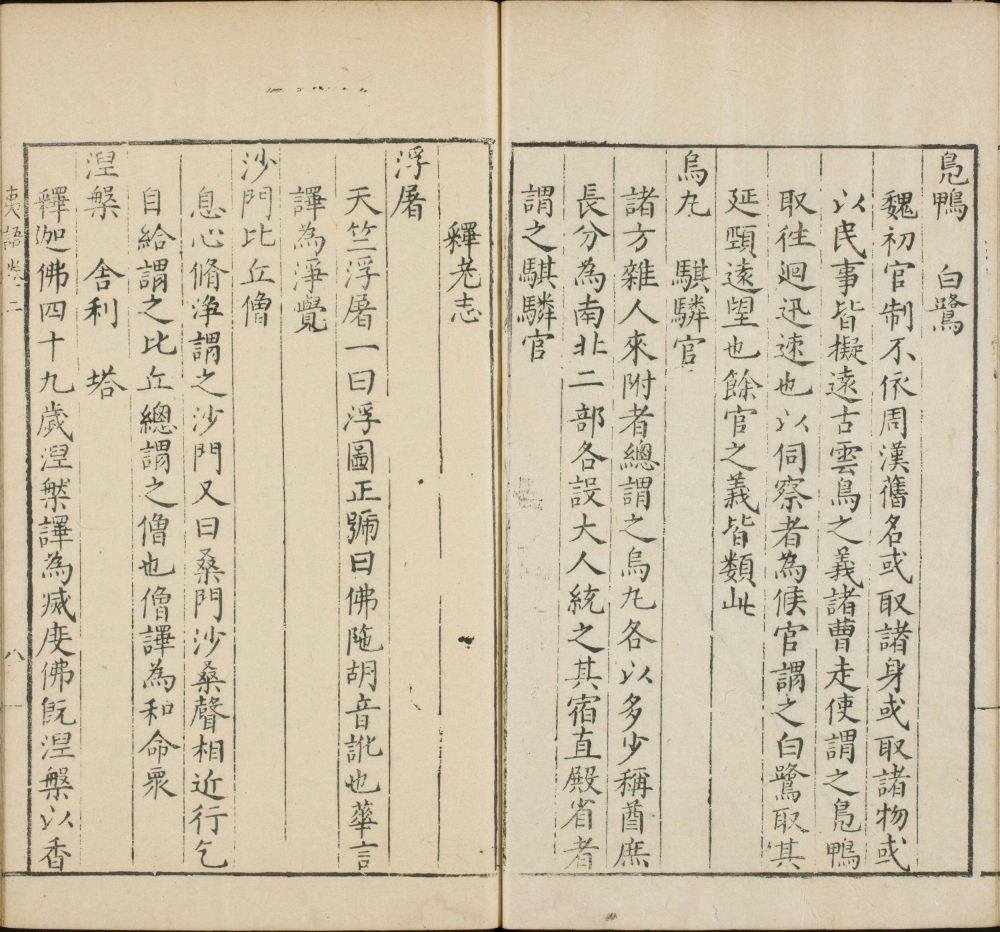 鳧鴨　白鷺
魏初官制不依周漢舊名或取諸身或取諸物或
以民事皆擬遠古雲鳥之義諸曹走使謂之鳧鴨
取徃迴迅速也以伺察者為候官謂之白鷺取其
延頸遠望也餘官之義皆類此
烏九　騏驎官
諸方雜人來附者總謂之烏九各以多少稱酋庶
長分為南北二部各設大人統之其宿直殿省者
謂之騏驎官
釋老志
浮屠
天竺浮屠一曰浮圖正號曰佛陁胡音訛也華言
譯為淨覺
沙門比丘僧
息心脩净謂之沙門又曰桑門沙桑聲相近行乞
自給謂之比丘總謂之僧也僧譯為和命衆
涅槃　舍利　塔
釋迦佛四十九歲涅槃譯為滅度佛旣涅槃以香
夷語卷二
八